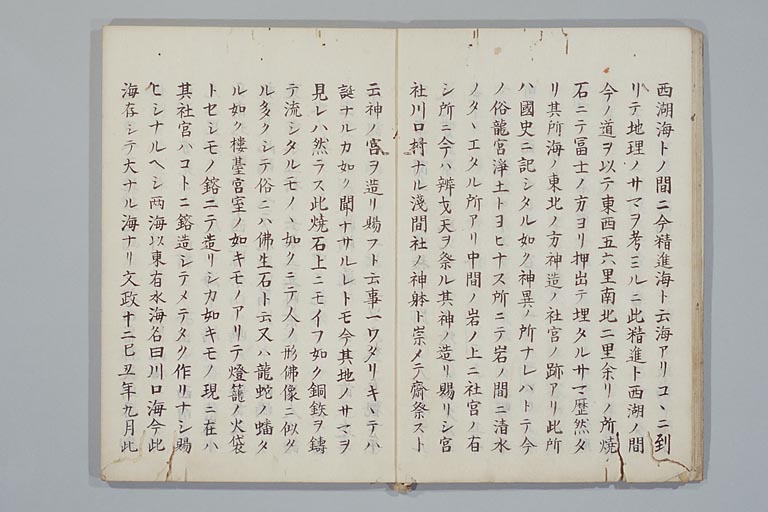 西湖海トノ間ニ今精進海ト云海アリコヽニ到
リテ地理ノサマヲ考ミルニ此精進ト西湖ノ間
今ノ道ヲ以テ東西五六里南北二里余リノ所焼
石ニテ冨士ノ方ヨリ押出テ埋タルサマ歴然タ
リ其所海ノ東北ノ方神造ノ社宮ノ跡アリ此所
ハ國史ニ記シタル如ク神異ノ所ナレハトテ今
ノ俗龍宮浄土トヨヒナス所ニテ岩ノ間ニ清水
ノタヽエタル所アリ中間ノ岩ノ上ニ社宮ノ有
シ所ニ今ハ辨戈天ヲ祭ル其神ノ造リ賜リシ宮
社川口村ナル淺間社ノ神躰ト崇メテ齋祭スト
云神ノ宮ヲ造リ賜フト云事一ワタリキヽテハ
誕ナルカ如ク聞ナサルレトモ今其地ノサマヲ
見レハ然ラス此焼石上ニモイフ如ク銅鉄ヲ鑄
テ流シタルモノヽ如クニテ人ノ形佛像ニ似タ
ル多クシテ俗ニハ佛生石ト云又ハ龍蛇ノ蟠タ
ル如ク楼臺宮室ノ如キモノアリテ燈籠ノ火袋
トセシモノ鎔ニテ造リシカ如キモノ現ニ在ハ
其社宮ハコトニ鎔造シテメテタク作リナシ賜
ヒシナルヘシ両海以東有水海名曰川口海今此
海存シテ大ナル海ナリ文政十二己丑年九月此